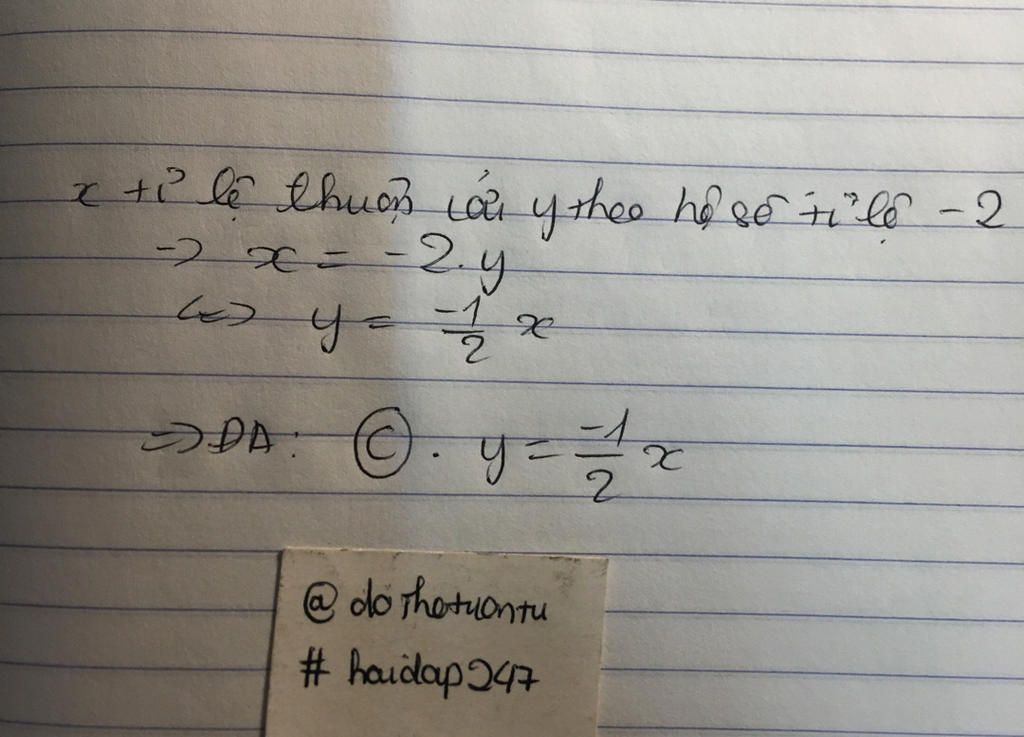 x tỉ lệ thuận với y theo hệ số tỉ lệ -2
-> x = -2.y
<=> y = \frac{-1}{2} x
=> ĐA: Ⓒ. y = \frac{-1}{2} x
# haidap247